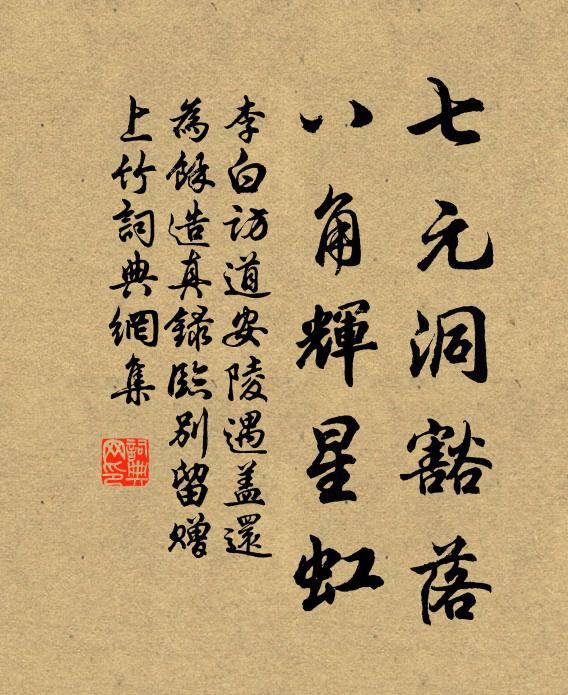 七元洞豁落
八角輝星虹
李白訪道安陵遇蓋還
為餘造真錄臨別留贈
上竹詞典網集
詞典网印